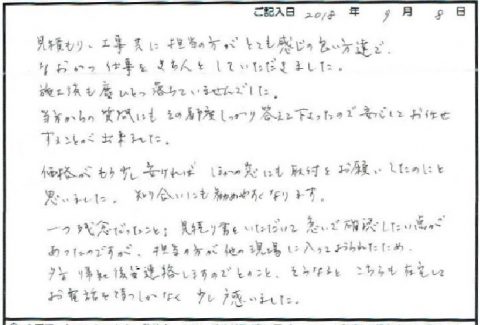 ご記入日 2018 年 9 月 8 日
見積もり、工事共に担当の方がとても感じの良い方達で、
なおかつ仕事をきちんとしていただきました。
施工後も塵ひとつ落ちていませんでした。
当方からの質問にもその都度しっかり答えて下さったので安心してお任せ
することが出来ました。
価格がもう少し安ければ ほかの窓にも取付をお願いしたのにと
思いました。知り合いにも勧めやすくなります。
一つ残念だったこと; 見積り書をいただいて急いで確認したい点が
あったのですが、担当の方が他の現場に入っておられたため、
夕方 帰社後連絡しますのでとのこと、そうなると こちらも在宅して
お電話を待つしかなく 少し戸惑いました。